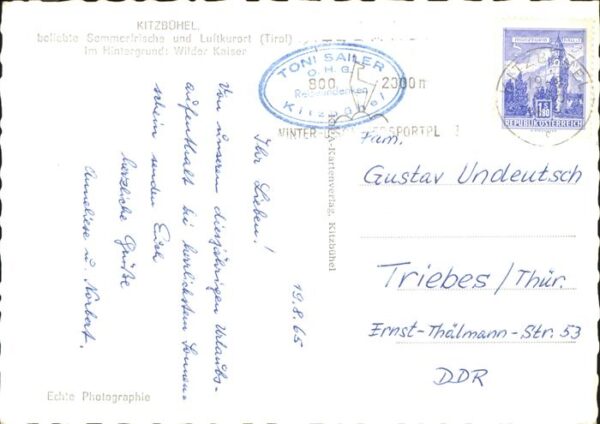 KITZBÜHEL,
beliebte Sommerfrische und Luftkurort (Tirol)
Im Hintergrund: Wilder Kaiser
TONI SAILER
O.H.G.
Reiseandenken
Kitzbühel
800 2000 m
WINTER- SPORTPL
REPUBLIK ÖSTERREICH
1.80
19.8.65
Ihr Lieben!
Von unserem diesjährigen Urlaubs-
aufenthalt bei herrlichstem Sonnen-
schein senden Euch
herzliche Grüße
Anneliese u. Norbert.
Echte Photographie
-Kartenverlag, Kitzbühel
Fam.
Gustav Undeutsch
Triebes/Thür.
Ernst-Thälmann-Str. 53
DDR